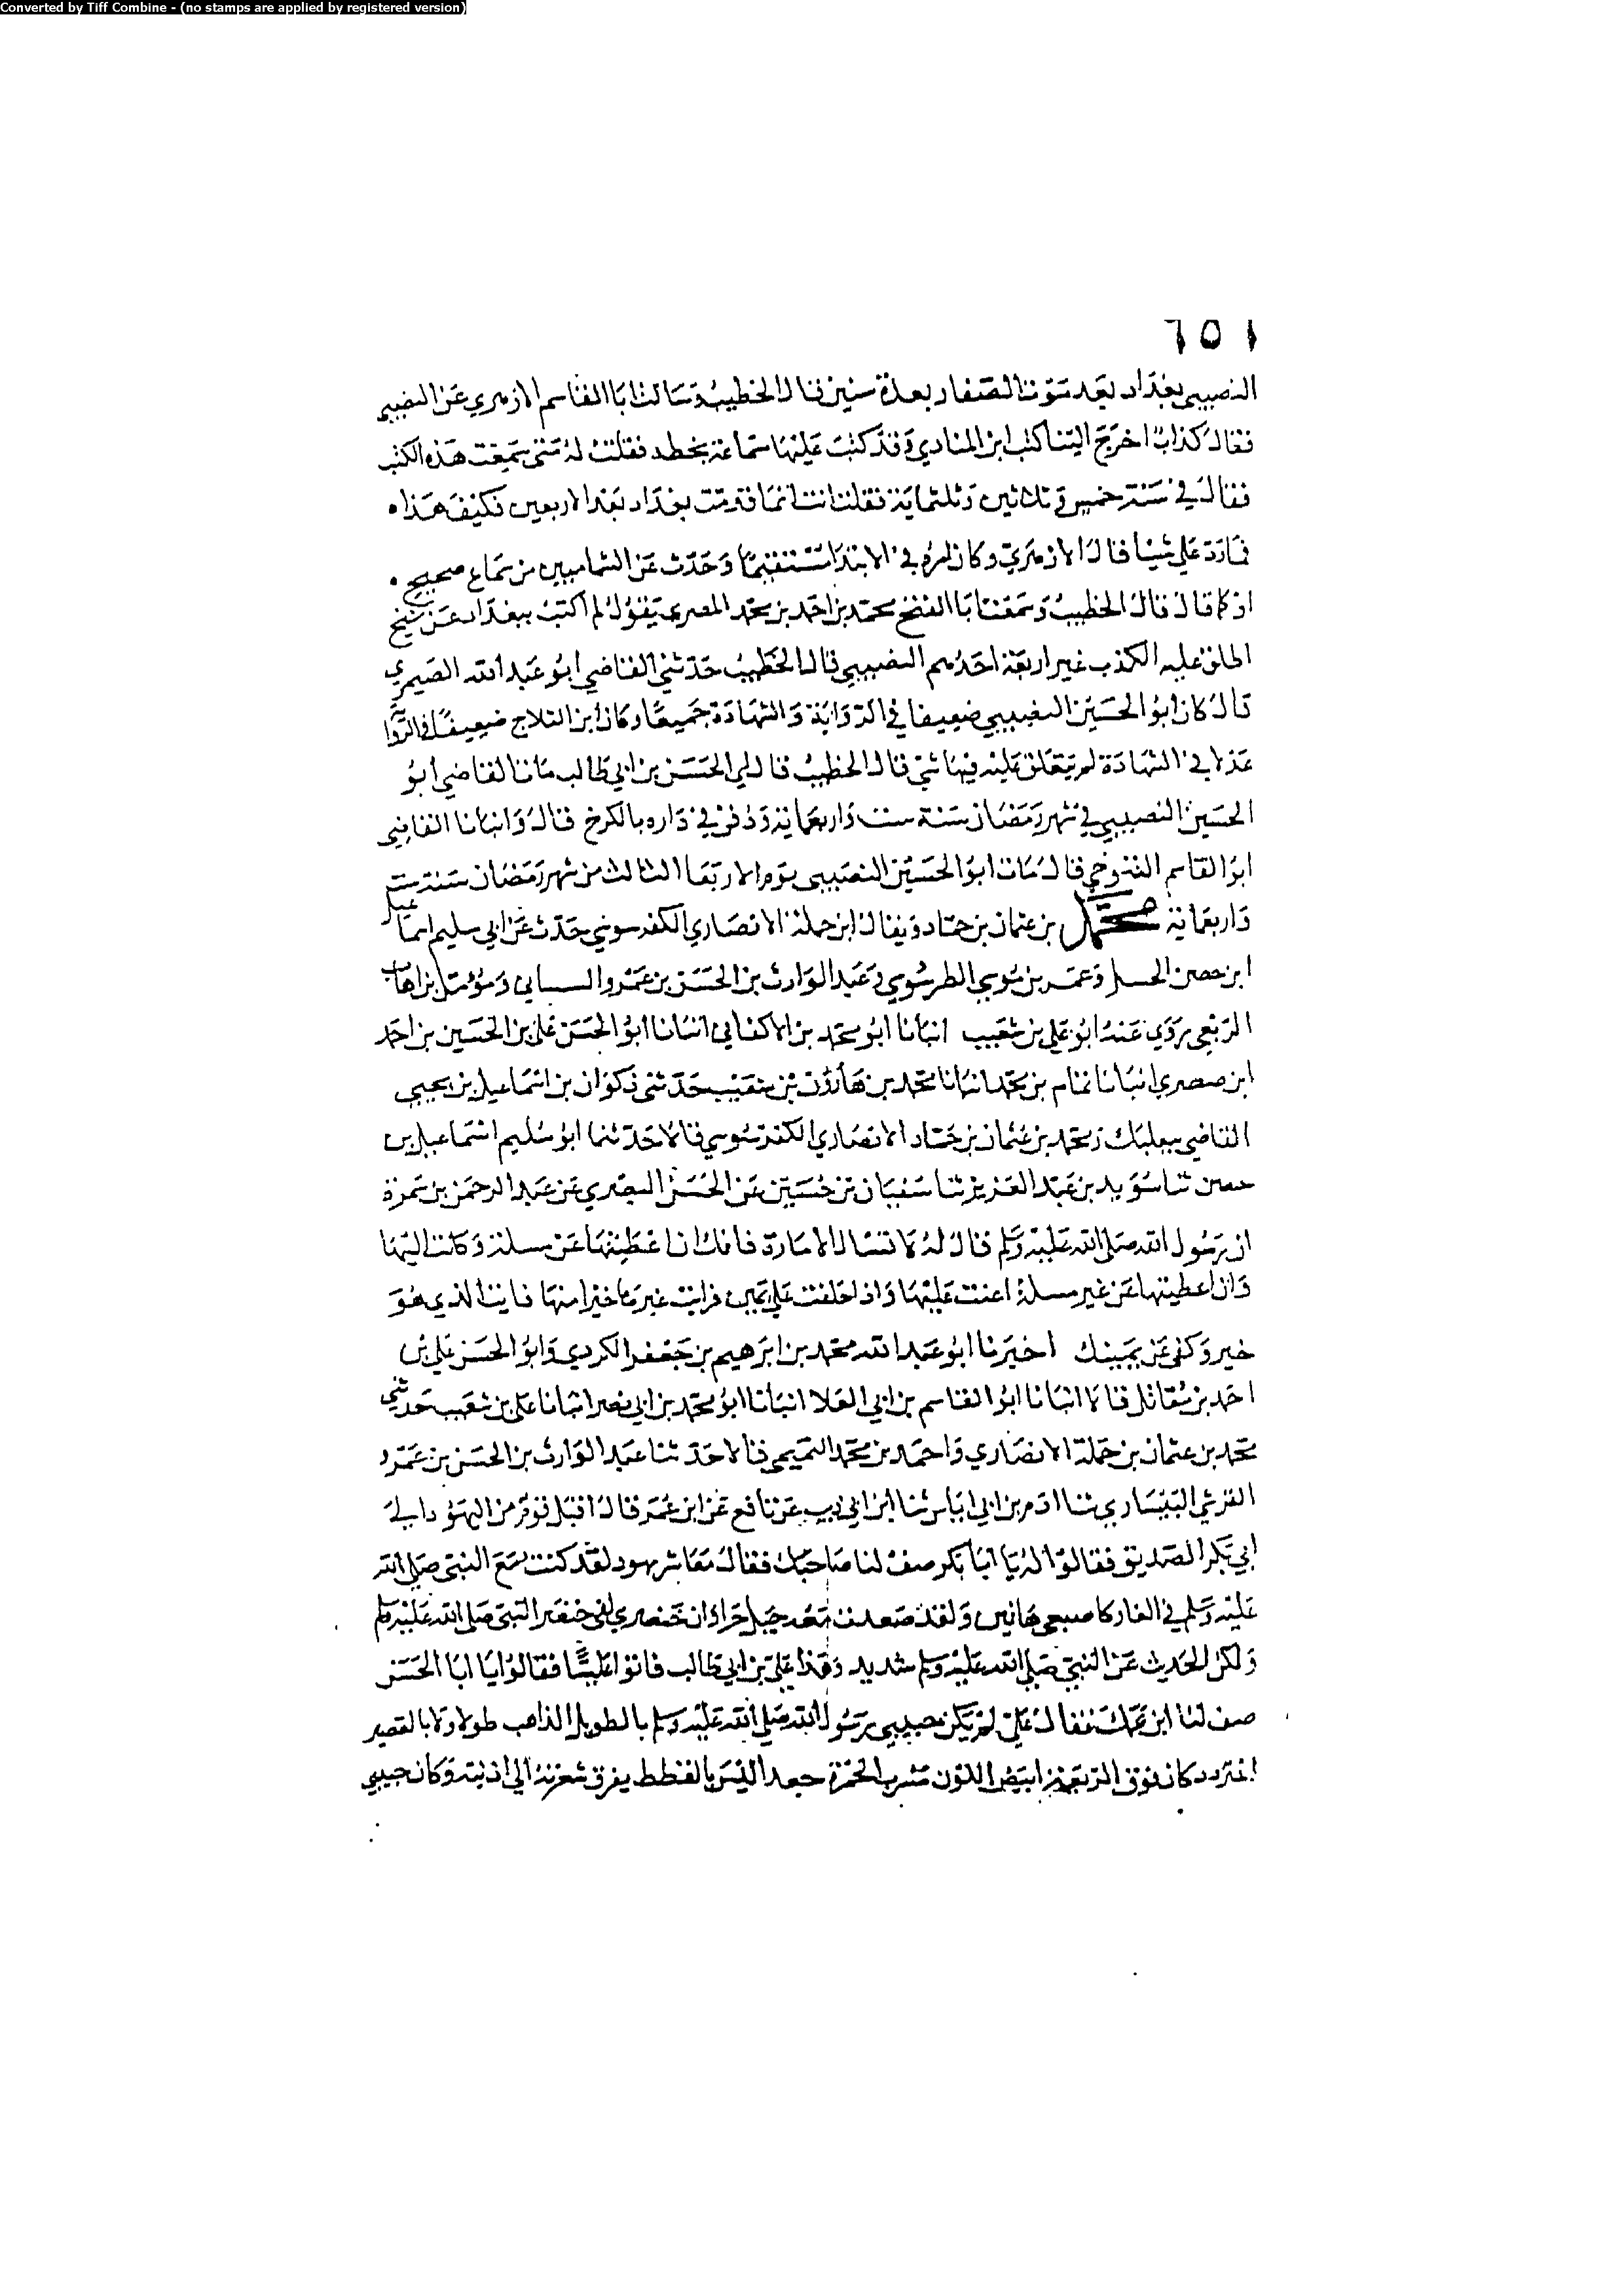 Converted by Tiff Combine - (no stamps are applied by registered version)
٦٥١
النصيبي بغداد بعد موت الصفار بعدة سنين قال الخطيب وسالت ابا القاسم الازهري عن النصيبي
فقال كذاب اخرج الينا كتب ابن المنادي وقد كتب عليها سماعه بخطه فقلت له متى سمعت هذه الكتب
فقال في سنة خمس وثلاثين وثلثماية فقلت انت انما قدمت بغداد بعد الاربعين فكيف هذا
فما رد علي شيا قال الازهري وكان امره في الابتدا مستقيما وحدث عن الشاميين من سماع صحيح
اذ كما قال قال الخطيب وسمعت ابا الفتح محمد بن احمد بن محمد المصري يقول لم اكتب ببغداد عن شيخ
اطلق عليه الكذب غير اربعة احدهم النصيبي قال الخطيب حدثني القاضي ابو عبد الله الصيمري
قال كان ابو الحسين النصيبي ضعيفا في الرواية والشهادة جميعا وكان ابن الثلاج ضعيفا في الروا
عدلا في الشهادة لم يتعلق عليه فيها شي قال الخطيب قال لي الحسن بن ابي طالب مات القاضي ابو
الحسين النصيبي في شهر رمضان سنة ست واربعماية ودفن في داره بالكرخ قال وانبانا القاضي
ابو القاسم التنوخي قال مات ابو الحسين النصيبي يوم الاربعا الثالث من شهر رمضان سنة ست
واربعماية محمد بن عثمان بن حماد ويقال ابن حملة الانصاري الكفرسوسي حدث عن ابي سليم اسماعيل
ابن حصن الجبلي وعمر بن موسى الطرسوسي وعبد الوارث بن الحسن بن عمرو البيساني ومؤمل بن اهاب
الربعي روى عنه ابو علي بن شعيب انبانا ابو محمد بن الاكفاني انبانا ابو الحسن علي بن الحسين بن احمد
ابن صصرى انبانا تمام بن محمد انبانا محمد بن هارون بن شعيب حدثني ذكوان بن اسماعيل بن يحيى
القاضي ببعلبك ومحمد بن عثمان بن حماد الانصاري الكفرسوسي قالا حدثنا ابو سليم اسماعيل بن
حصن ثنا سويد بن عبد العزيز ثنا سفيان بن حسين عن الحسن البصري عن عبد الرحمن بن سمرة
ان رسول الله صلى الله عليه وسلم قال له لا تسال الامارة فانك ان اعطيتها عن مسلة وكلت اليها
وان اعطيتها عن غير مسلة اعنت عليها واذا حلفت على يمين فرايت غيرها خيرا منها فايت الذي هو
خير وكفر عن يمينك اخبرنا ابو عبد الله محمد بن ابرهيم بن جعفر الكردي وابو الحسن علي بن
احمد بن مقاتل قالا انبانا ابو القاسم بن ابي العلا انبانا ابو محمد بن ابي نصر انبانا علي بن شعيب حدثني
محمد بن عثمان بن حملة الانصاري واحمد بن محمد التميمي قالا حدثنا عبد الوارث بن الحسن بن عمرو
القرشي البيساري ثنا ادم بن ابي اياس ثنا ابن ابي ذيب عن نافع عن ابن عمر قال اقبل قوم من اليهود الى
ابي بكر الصديق فقالوا له يا ابا بكر صف لنا صاحبك فقال معاشر يهود لقد كنت مع النبي صلى الله
عليه وسلم في الغار كاصبعي هاتين ولقد صعدت معه جبل حراء وان خنصري لفي خنصر النبي صلى الله عليه وسلم
ولكن الحديث عن النبي صلى الله عليه وسلم شديد وهذا علي بن ابي طالب فاتوا عليا فقالوا يا ابا الحسن
صف لنا ابن عمك فقال علي لم يكن حبيبي رسول الله صلى الله عليه وسلم بالطويل الذاهب طولا ولا بالقصير
المتردد كان فوق الربعة ابيض اللون مشرب الحمرة جعدا ليس بالقطط يفرق شعرته الى اذنيه وكان حبيبي